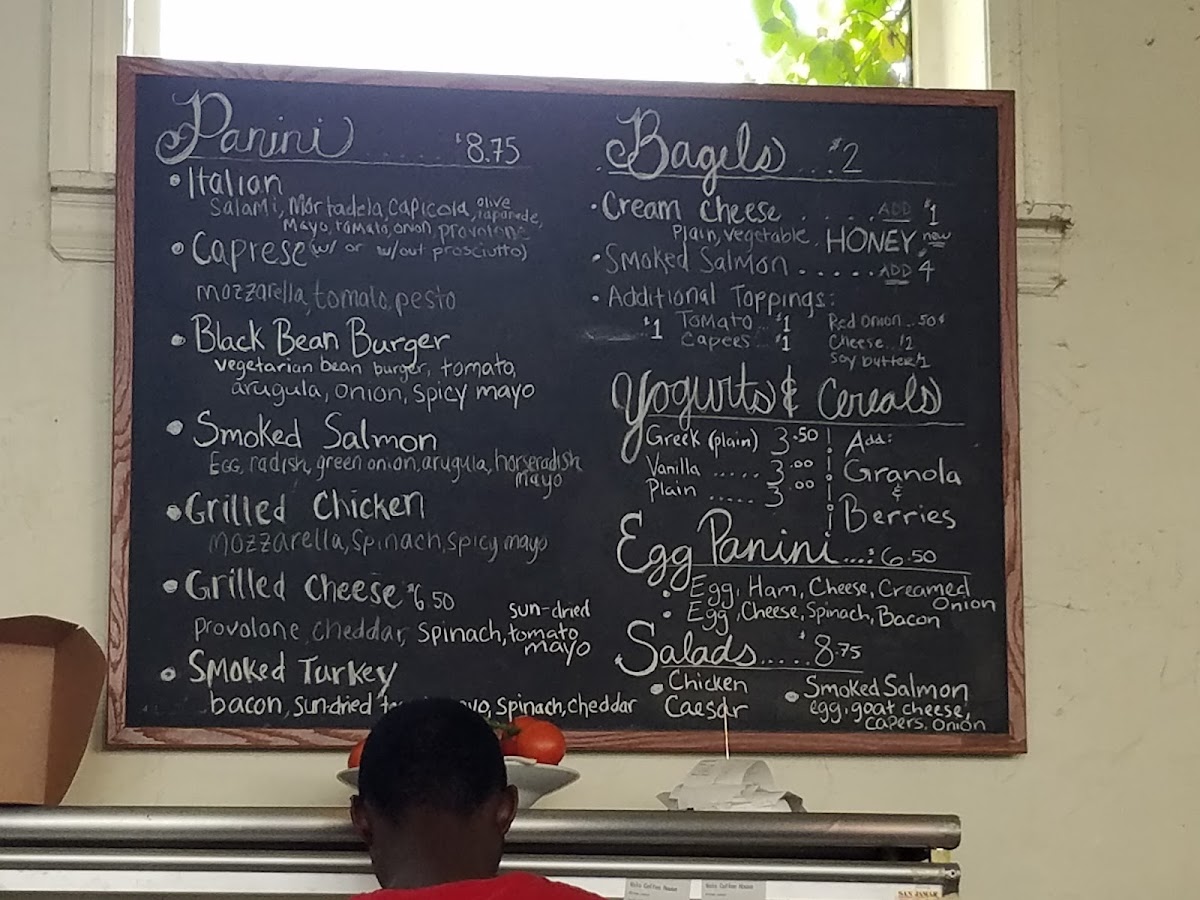 Panini ..... $8.75
• Italian
Salami, Mortadela, capicola, olive tapanede,
Mayo, tomato, onion provolone
• Caprese (w/ or w/out prosciutto)
mozzarella, tomato, pesto
• Black Bean Burger
vegetarian bean burger, tomato,
arugula, onion, spicy mayo
• Smoked Salmon
Egg, radish, green onion, arugula, horseradish
mayo
• Grilled Chicken
Mozzarella, Spinach, spicy mayo
• Grilled Cheese $6.50
Provolone, cheddar, spinach, sun-dried tomato
mayo
• Smoked Turkey
bacon, sun-dried spinach, cheddar
Bagels ... $2
• Cream Cheese .... ADD $1
Plain, vegetable, HONEY new
• Smoked Salmon ..... ADD 4
• Additional Toppings:
$1 Tomato .. $1 Red Onion .. 50¢
Capees .. $1 Cheese .. $2
Soy butter $1
Yogurts & Cereals
Greek (plain) 3.50
Vanilla ..... 3.00
Plain ..... 3.00
Add:
Granola
&
Berries
Egg Panini ...: 6.50
• Egg, Ham, Cheese, Creamed
Onion
• Egg, Cheese, Spinach, Bacon
Salads ..... $8.75
• Chicken
Caesar
• Smoked Salmon
egg, goat cheese,
capers, onion